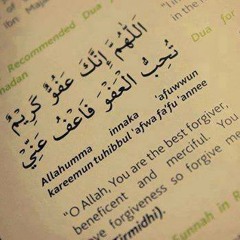 of
Ibn Maja
Recommended Dua
Dua for
in the
madan
اَللّٰهُمَّ اِنَّكَ عَفُوٌّ كَرِيْمٌ
تُحِبُّ الْعَفْوَ فَاعْفُ عَنِّيْ
Allahumma innaka 'afuwwun
kareemun tuhibbul 'afwa fa'fu 'annee
"O Allah, You are the best forgiver,
beneficent and merciful. You
ve forgiveness so forgive me
irmidhi).
Sunnah in R